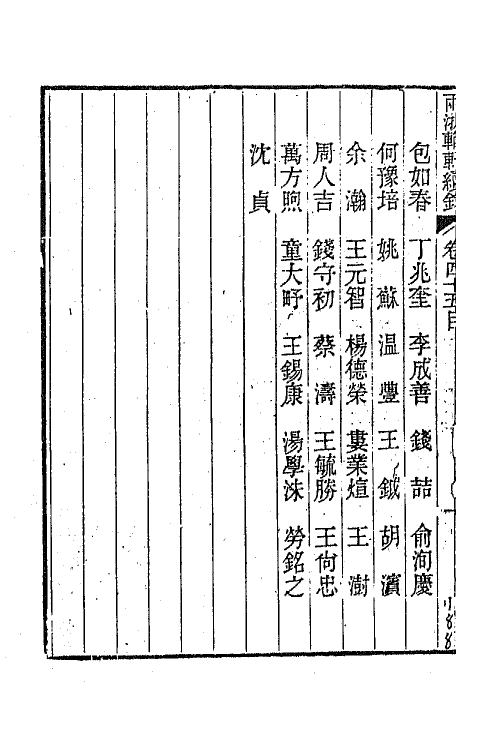 兩浙輶軒續錄 卷四十五目
包如春 丁兆奎 李成善 錢喆 俞洵慶
何豫培 姚蘇 温豐 王鉞 胡濱
余瀚 王元智 楊德榮 婁業煊 王澍
周人吉 錢守初 蔡濤 王毓勝 王尙忠
萬方煦 童大㽙 王錫康 湯學洙 勞銘之
沈貞